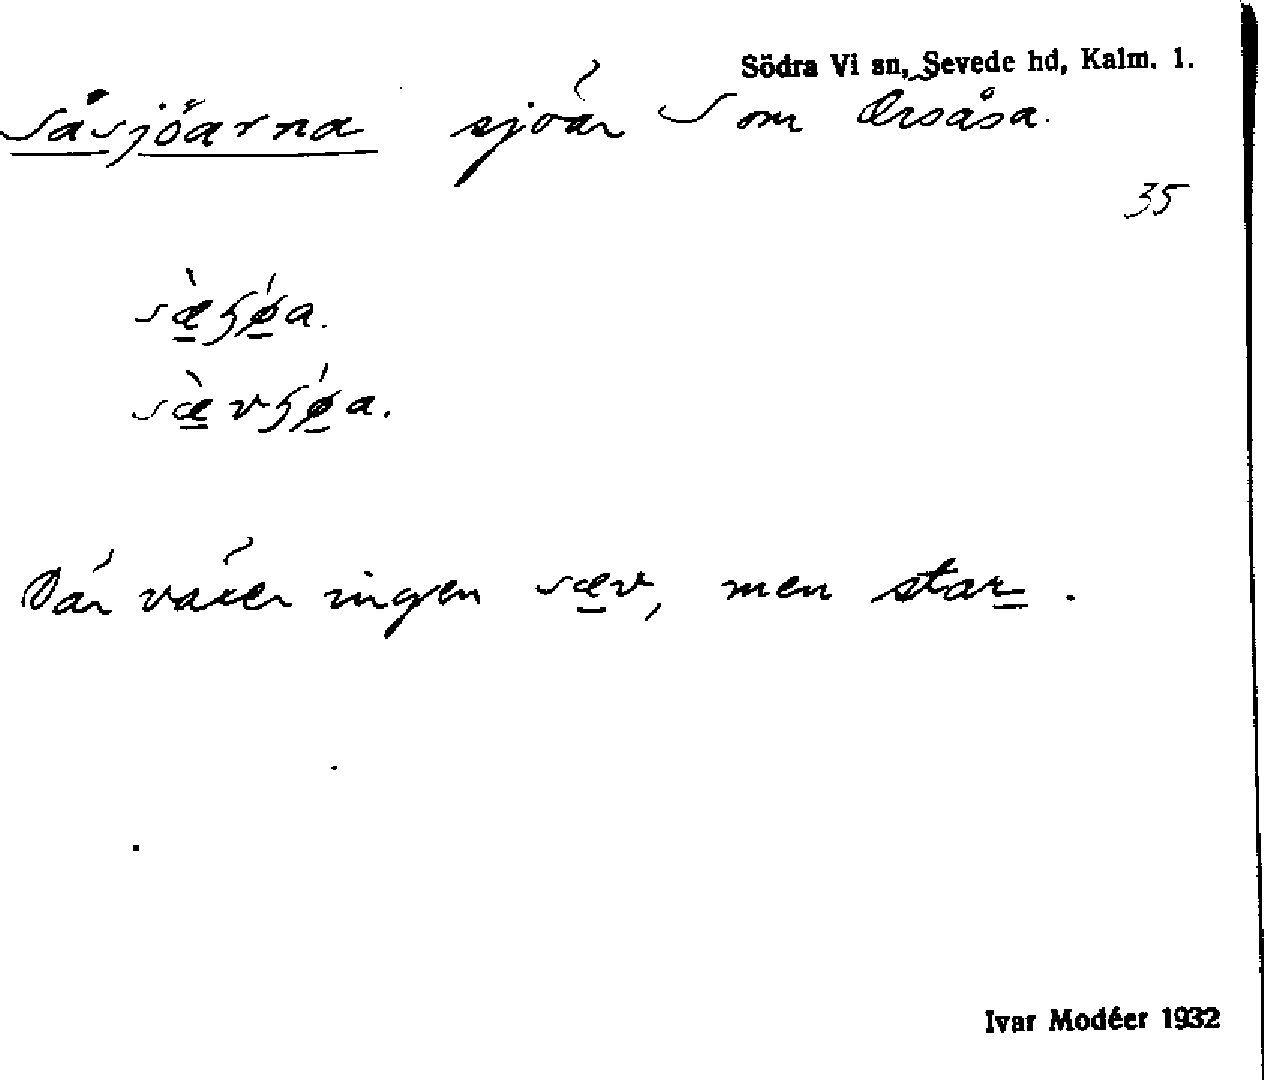 Södra Vi sn, Sevede hd, Kalm. l.
Såsjöarna sjöar S om Ersåsa.
35
sæ̀ʃǿa.
sæ̀vʃǿa.
Där växer ingen sæv, men star.
Ivar Modéer 1932